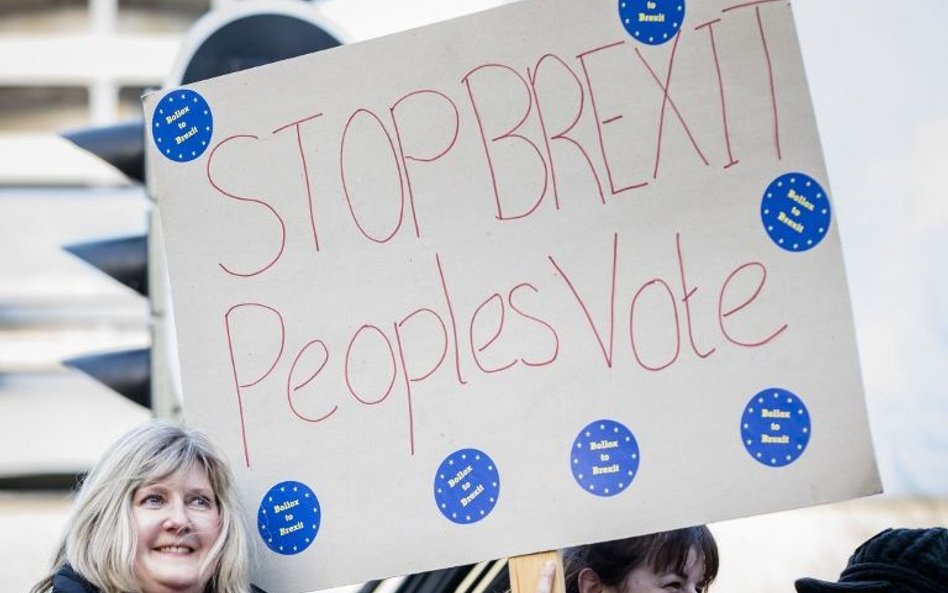 Bollox
to
Brexit
STOP BREXIT
Peoples Vote
Bollox
to
Brexit
Bollox
to
Brexit
Bollox
to
Brexit
Bollox
to
Brexit
Bollox
to
Brexit
Bollox
to
Brexit